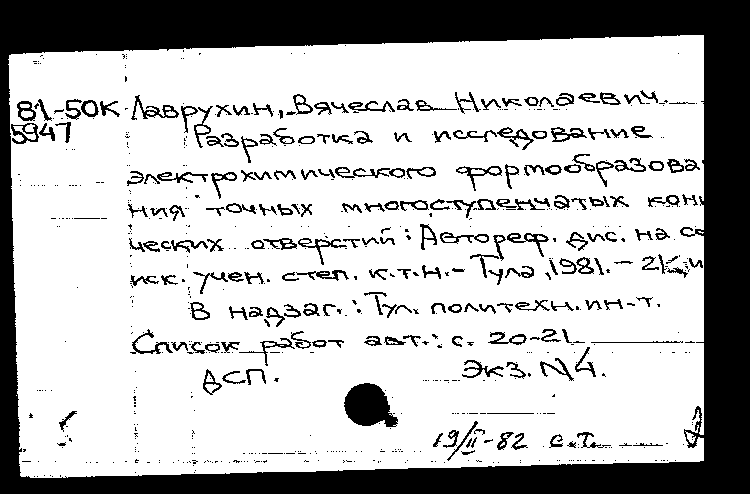 81-50К Лаврухин, Вячеслав Николаевич.
5947 Разработка и исследование
электрохимического формообразова
ния точных многоступенчатых кони
ческих отверстий: Автореф. дис. на со
иск. учен. степ. к.т.н.- Тула, 1981. - 21
В надзаг.: Тул. политехн. ин-т.
Список работ авт.: с. 20-21
ДСП. Экз. N4.
19/II-82 с.т.